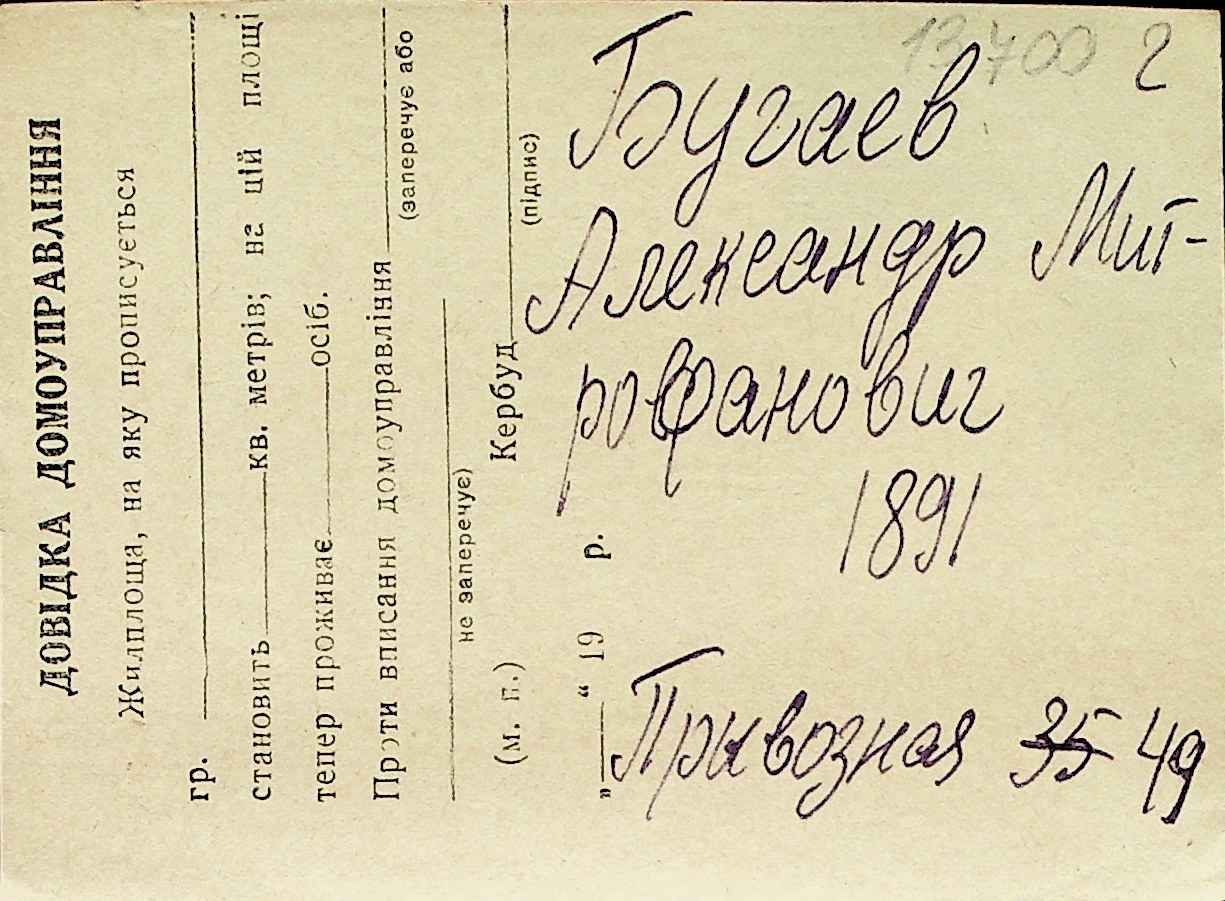 ДОВІДКА ДОМОУПРАВЛІННЯ
Жилплоща, на яку прописується
гр.
становить кв. метрів; на цій площі
тепер проживає осіб.
Проти вписання домоуправління
(заперечує або
не заперечує)
(м. п.) Кербуд
(підпис)
„ “ 19 р.
13700 2
Бугаев
Александр Мит-
рофанович
1891
Привозная 35 49